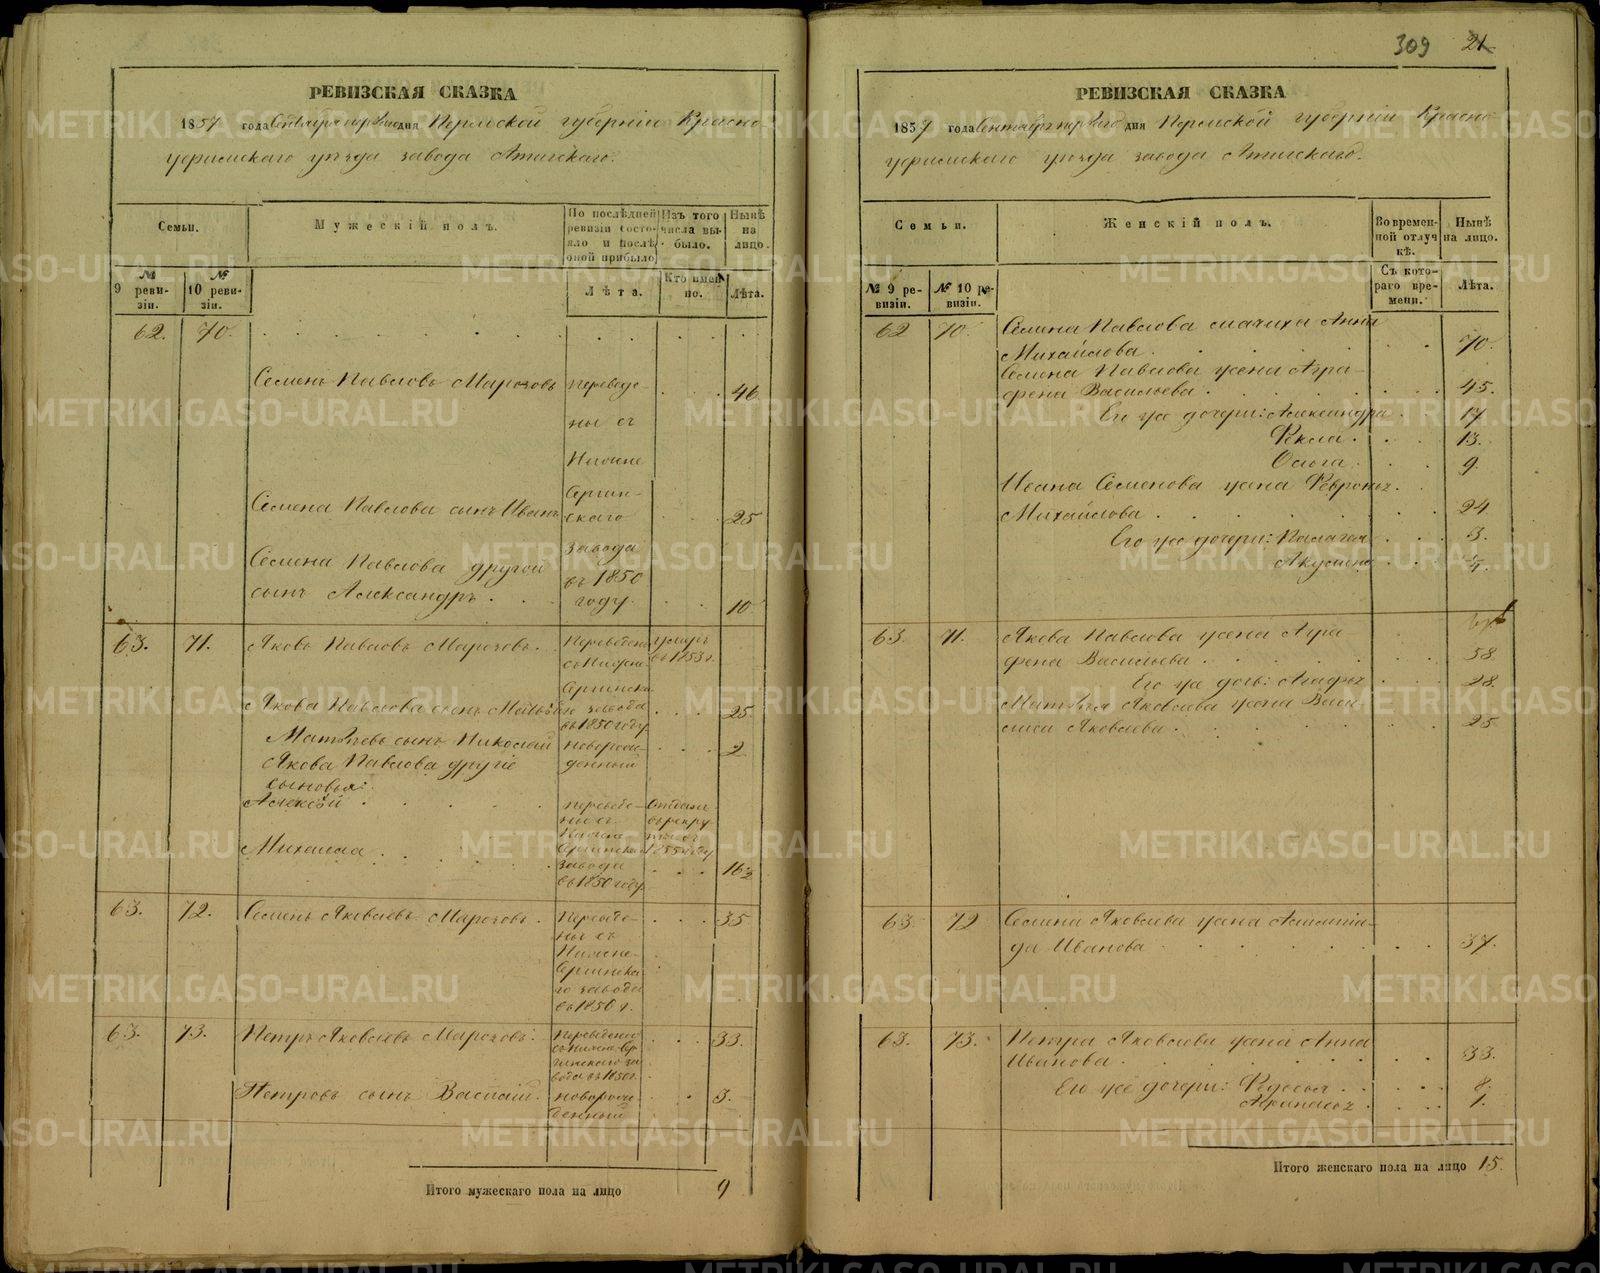 309 21
РЕВИЗСКАЯ СКАЗКА
1857 года Сентября перваго дня Пермской губернiи Красно-
уфимскаго уѣзда завода Атигскаго.
Семьи.
Мужескiй полъ.
По послѣдней ревизiи состояло и послѣ оной прибыло.
Изъ того числа выбыло.
Нынѣ на лицо.
№ 9 ревизiи.
№ 10 ревизiи.
Лѣта.
Кто именно.
Лѣта.
62. 70.
Семенъ Павловъ Марозовъ переведе- 46
ны съ
Нижне
Семена Павлова сынъ Иванъ Сергин-
скаго 25
Семена Павлова другой завода
въ 1850
сынъ Александръ. году. 10
63. 71. Яковъ Павловъ Марозовъ. Переведены умеръ
съ Нижне въ 1853 г.
Якова Павлова сынъ Матвѣй завода 25
въ 1850 году
Матвѣевъ сынъ Николай новорож- 2
Якова Павлова другiе денный
сыновья:
Алексѣй переведе- отданъ
ны съ въ рекру
Нижне ты въ
Михаила Сергинска 1855 году
завода 16½
въ 1850 году
63. 72. Семенъ Яковлевъ Марозовъ. Переведе- 35
ны съ
Нижне-
Сергинска
го завода
въ 1850 г.
63. 73. Петръ Яковлевъ Марозовъ. Переведены 33.
съ Нижне-Сер
гинскаго за
вода въ 1850 г.
Петровъ сынъ Василiй. новорож- 3.
денный
Итого мужескаго пола на лицо 9
РЕВИЗСКАЯ СКАЗКА
1857 года Сентября перваго дня Пермской губернiи Красно-
уфимскаго уѣзда завода Атигскаго.
Семьи.
Женскiй полъ.
Во временной отлучкѣ.
Нынѣ на лицо.
№ 9 ревизiи.
№ 10 ревизiи.
Съ котораго времени.
Лѣта.
62 70. Семена Павлова мачиха Анна
Михайлова. 70.
Семена Павлова жена Агра-
фена Васильева. 45.
Его же дочери: Александра 17
Фекла. 13.
Ольга. 9.
Ивана Семенова жена Февронья
Михайлова. 24
Его же дочери: Палагея 3.
Акулина 4.
63. 71. Якова Павлова жена Агра-
фена Васильева. 58
Его же дочь: Агафья 28.
Матвѣя Яковлева жена Васи-
лиса Яковлева. 25
63. 72 Семена Яковлева жена
да Иванова 37.
63. 73. Петра Яковлева жена Анна
Иванова. 33.
Его же дочери: Федосья 8.
1.
Итого женскаго пола на лицо 15.
METRIKI.GASO-URAL.RU